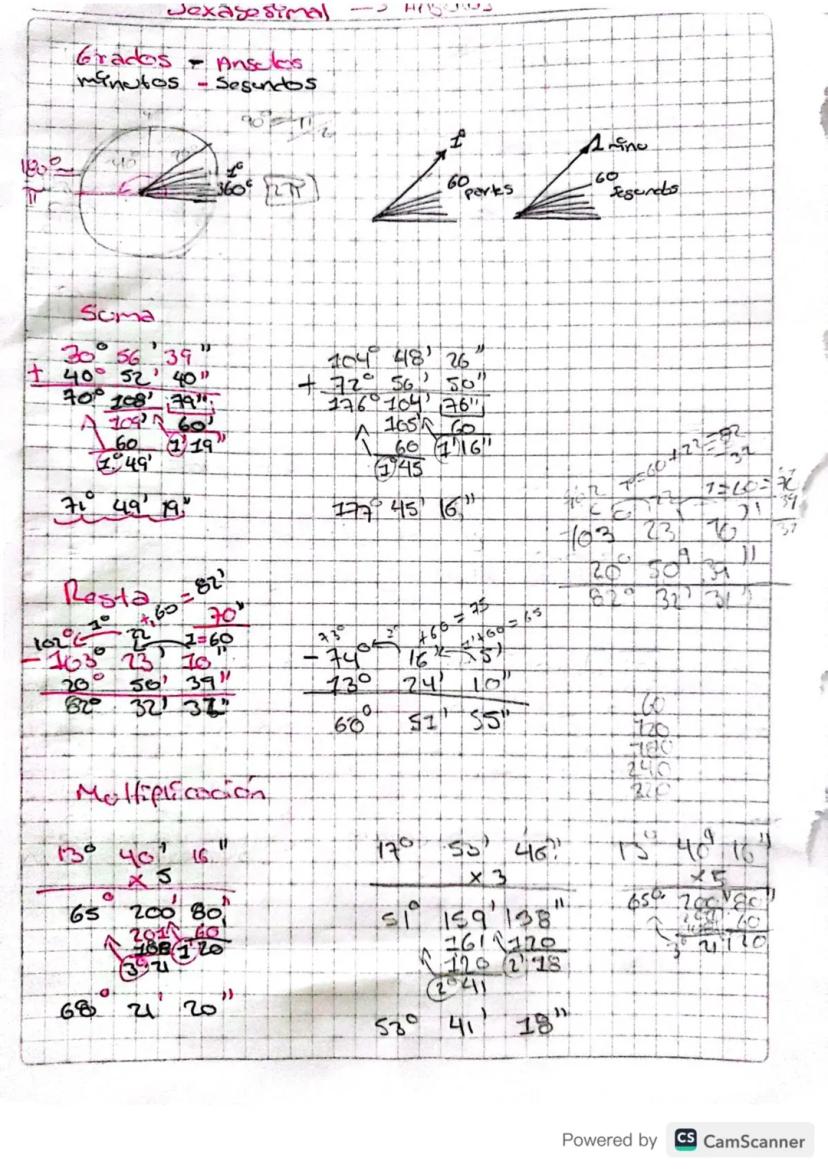 Sexagesimal → Angulos
Grados - Angulos
minutos - Segundos
180° =
π
1°
360° 2π
1°
60
partes
1 minu
60
Segundos
Suma
30° 56' 39"
+ 40° 52' 40"
70° 108' 79"
109' 60'
60 1' 19"
1° 49'
71° 49' 19"
104° 48' 26"
+ 72° 56' 50"
176° 104' 76"
105' 60
60 1' 16"
1° 45
177° 45' 16"
7=60+22=82
32
103 23 10
20° 50' 39"
82° 32' 31"
Resta
= 82'
+60 70"
102° 1° 22 1=60
- 103° 23' 10"
20° 50' 39"
82° 32' 31"
73° +60 = 75 1'+60=65
- 74° 16' 5"
13° 24' 10"
60° 51' 55"
60
120
180
240
320
Moltiplicación
13° 40' 16"
x 5
65° 200' 80"
201 60
180 1' 20
3° 21
68° 21' 20"
17° 53' 46"
x 3
51° 159' 138"
161 120
120 2' 18
2° 41
53° 41' 18"
13° 40' 16"
x5
65° 200' 80"
3° 21' 20
Powered by CS CamScanner